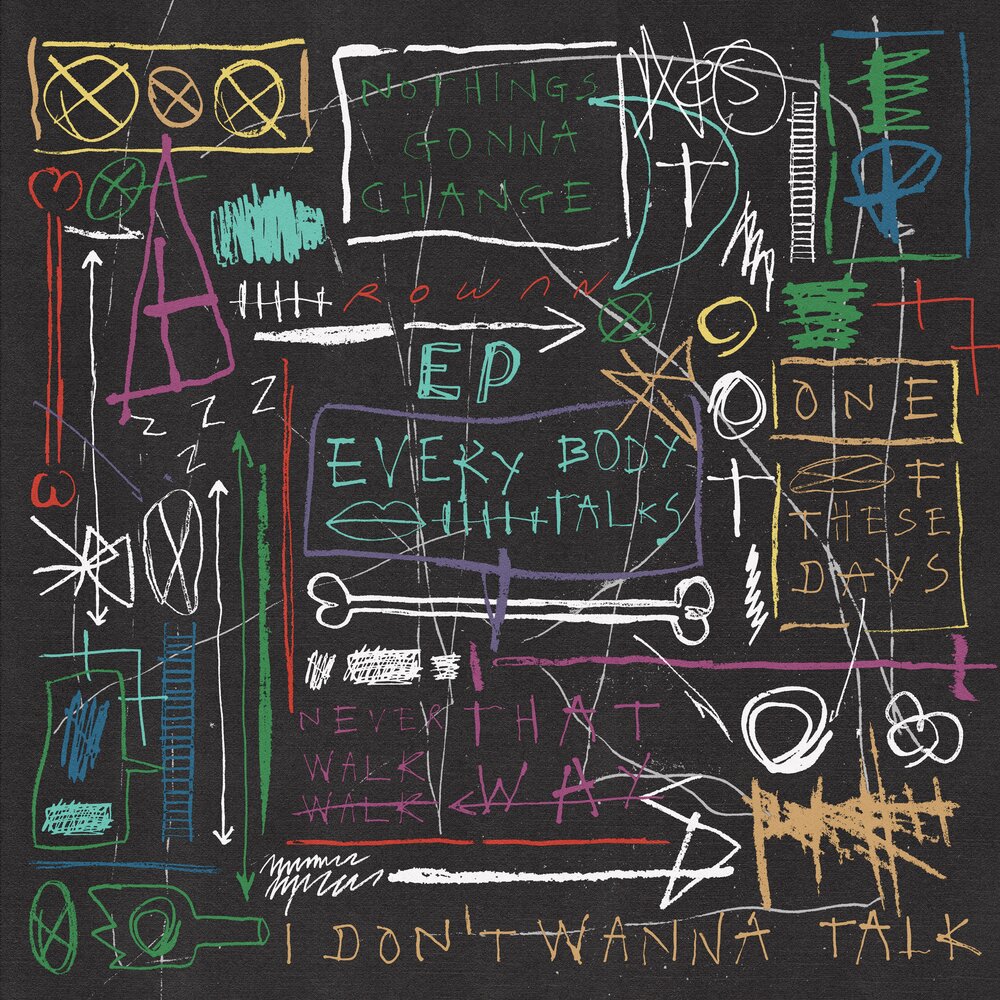 NOTHINGS
GONNA
CHANGE
ROWAN
EP
EVERY BODY
TALKS
ONE
OF
THESE
DAYS
Z
Z
Z
Z
Z
NEVER THAT
WALK
WALK WAY
I DON'T WANNA TALK